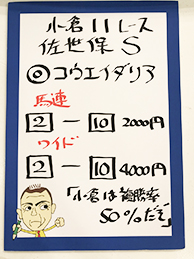 小倉11レース
佐世保S
◎コウエイダリア
馬連
2－10 2000円
ワイド
2－10 4000円
「小倉は複勝率
50％だぞ」